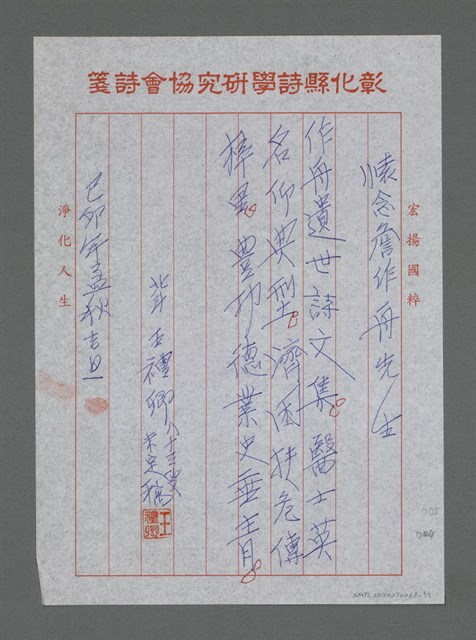 彰化縣詩學研究協會詩箋
宏揚國粹
懷念詹作舟先生
作舟遺世詩文集。醫士英
名仰典型。濟困扶危傳
梓里。豊功德業史垂青。
北斗 王禮卿八十三叟
未是稿
王禮卿
己卯年孟秋吉旦
淨化人生